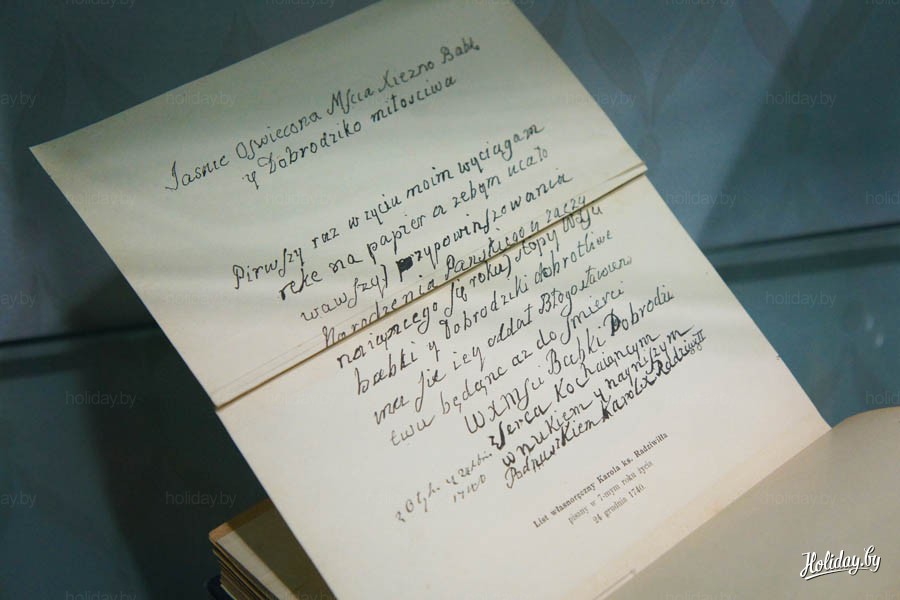 Jasnie Oswiecona Mscia Xiezno Babk
y Dobrodziko miłosciwa
Pirwszy raz w zyciu moim wyciągam
reke na papier a zebym ucało
wawszy przypowinszowania
Narodzenia Panskiego y zaczy
naiącego się roku stopy Wxs
babki y Dobrodziki dobrotliwe
na sie iey oddał Błogosławien
twu będąnc aż do smierci
WXMsci Babki Dobrodzi
Serca Kochaiącym
wnukiem y nayniszym
Podnuszkiem Karolx Radziwiłł
1740
List własnoręczny Karola ks. Radziwiłła
pisany w 7-mym roku życia
24 grudnia 1740.
Holiday.by
holiday.by